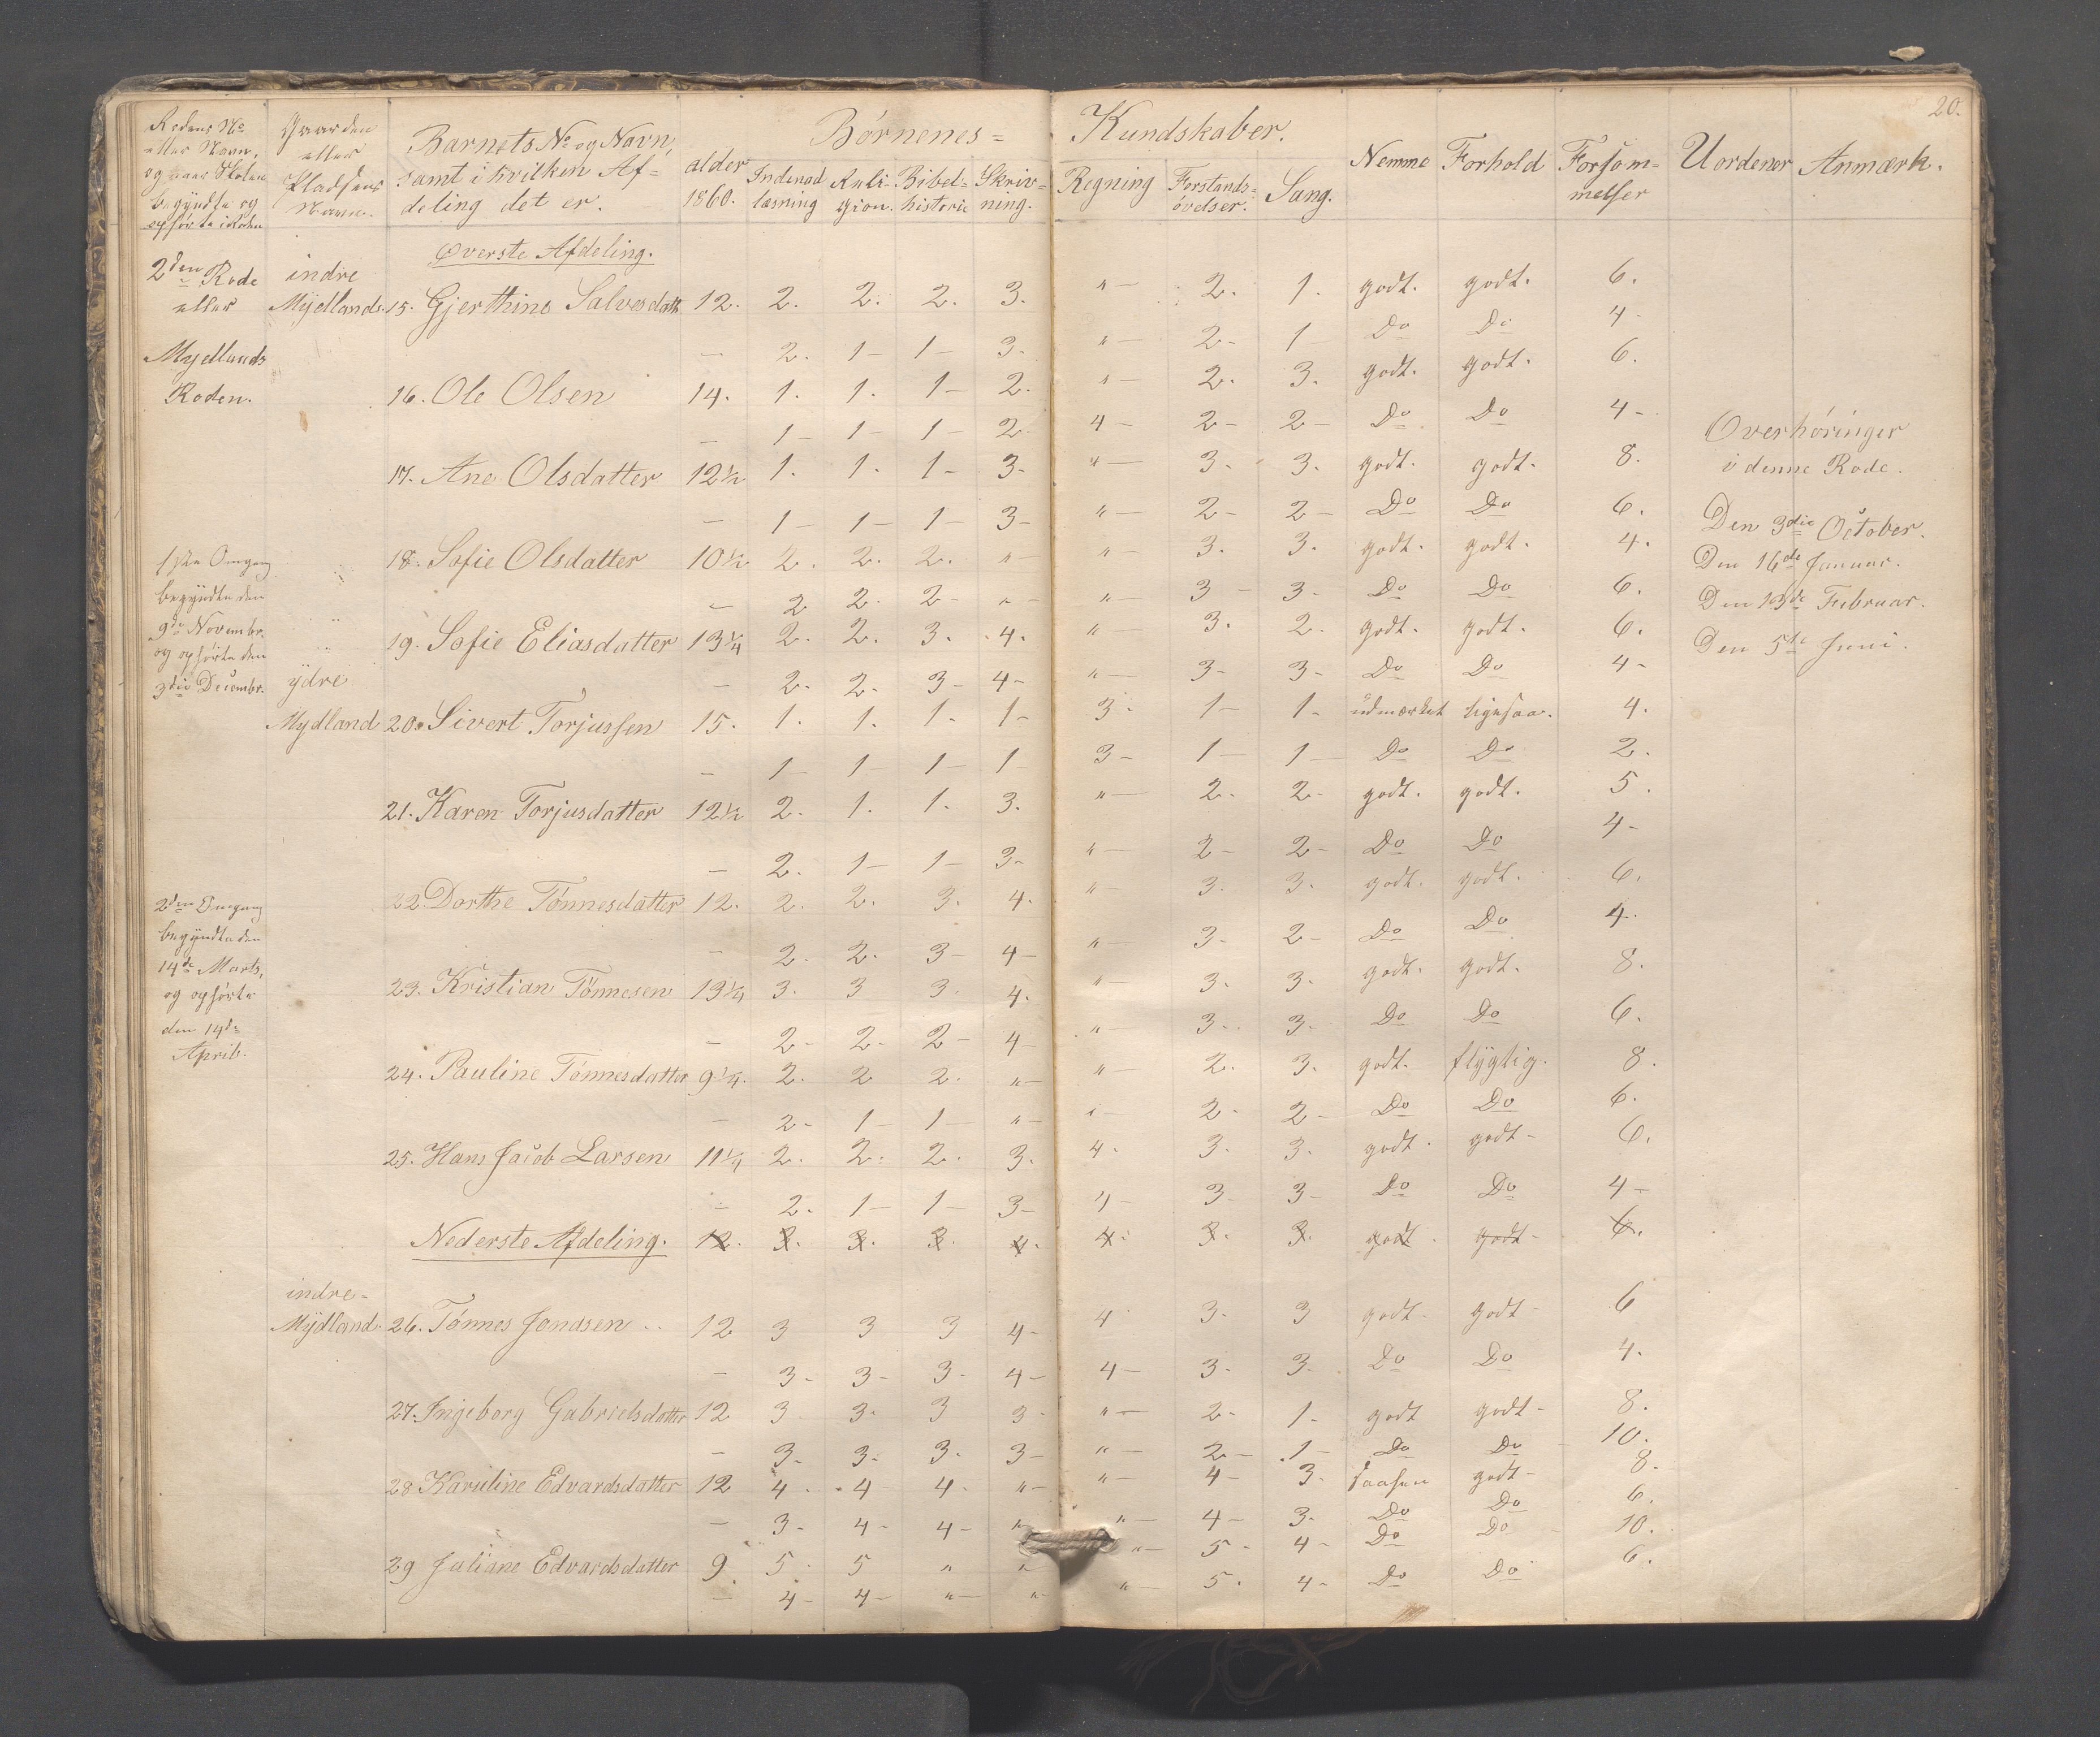 20.
Rodens No eller Navn, og naar Skolen begyndte og ophørte i Roden
Gaarden eller Pladsens Navn.
Barnets No og Navn, samt i hvilken Af=deling det er.
alder 1860.
Børnenes= Kundskaber.
Indenad læsning Reli=gion. Bibel=historie Skriv=ning. Regning Forstands=øvelser. Sang. Nemme Forhold Forsøm=melser Uordener Anmærk.
Øverste Afdeling.
2den Rode eller Myedlands Roden.
indre
Myedlands. 15. Gjerthine Salvesdatt 12. 2. 2. 2. 3. " — 2. 1. godt. godt. 6.
— 2. 1 — 1 — 3. " — 2 - 1 Do Do 4 -
16. Ole Olsen 14. 1. 1. 1 — 2. " — 2. 3. godt. godt. 6.
— 1 — 1 — 1 — 2. 4 — 2 - 2 — Do Do 4 -
17. Ane Olsdatter 12½ 1. 1. 1 - 3. " — 3. 3. godt. godt. 8.
— 1 — 1 — 1 — 3 - " — 2 - 2 — Do Do 6.
18. Sofie Olsdatter 10½ 2. 2. 2. " — " — 3. 3. godt. godt. 4.
— 2 2. 2 - " - " — 3 - 3. Do Do 6.
19. Sofie Eliasdatter 13¼ 2. 2. 3. 4. " — 3. 2. godt. godt. 6.
— 2. 2. 3 - 4 - " — 3. 3 - Do Do 4 -
1ste Omgang
begyndte den
9de Novembr.
og ophørte den
3die Decembr.
ydre
Mydland 20. Sivert Torjussen 15. 1. 1. 1. 1 - 3. 1 — 1. udmærket ligesaa. 4.
— 1 — 1 — 1 — 1 3 - 1 — 1 — Do Do 2.
21. Karen Torjusdatter 12½ 2. 1. 1. 3. " — 2. 2. godt. godt. 5.
— 2. 1 — 1 — 3 - " — 2 - 2 - Do Do 4 -
22. Dorthe Tønnesdatter 12. 2. 2. 3. 4. " — 3. 3. godt. godt. 6.
— 2. 2. 3 - 4 - " — 3. 2 - Do Do 4.
23. Kristian Tønnesen 13¼ 3. 3 3. 4. " — 3. 3. godt. godt. 8.
— 2 - 2 - 2 - 4 - " — 3. 3. Do Do 6.
24. Pauline Tønnesdatter 9¼. 2. 2 2. " — " — 2. 3. godt. flygtig. 8.
— 2 - 1 — 1 — " — " — 2 - 2 - Do Do 6.
25. Hans Jacob Larsen 11¼ 2. 2. 2. 3. 4. 3. 3. godt. godt - 6.
— 2. 1 — 1 — 3 - 4 - 3 3 - Do Do 4 -
2den Omgang
begyndte den
14de Marts,
og ophørte
den 14de
April.
Nederste Afdeling. 12. 3. 3. 3. 4. 4. 3. 3. godt. godt - 6.
indre-
Mydland. 26. Tønnes Jonasen 12 3 3 3 4 - 4 3. 3 godt - godt - 6
— 3 - 3 - 3 - 4 - 4 — 3. 3. Do Do 4.
27. Ingeborg Gabrielsdatter 12 3 3. 3 3 - " — 2. 1. godt godt - 8.
— 3. 3. 3. 3 — " — 2 - 1 - Do Do 10.
28 Karuline Edvardsdatter 12 4. 4 4. " — " — 4 - 3. saasen godt - 8.
— 3. 4 - 4 - " " — 4 - 3. Do Do 6.
29 Juliane Edvardsdatter 9. 5. 5 " " " — 5 - 4 - Do Do 10.
— 4 - 4 - " — " " — 5. 4 - Do Do 6.
Overhøringer
i denne Rode.
Den 3die October.
Den 16de Januar.
Den 13de Februar.
Den 5te Juni.